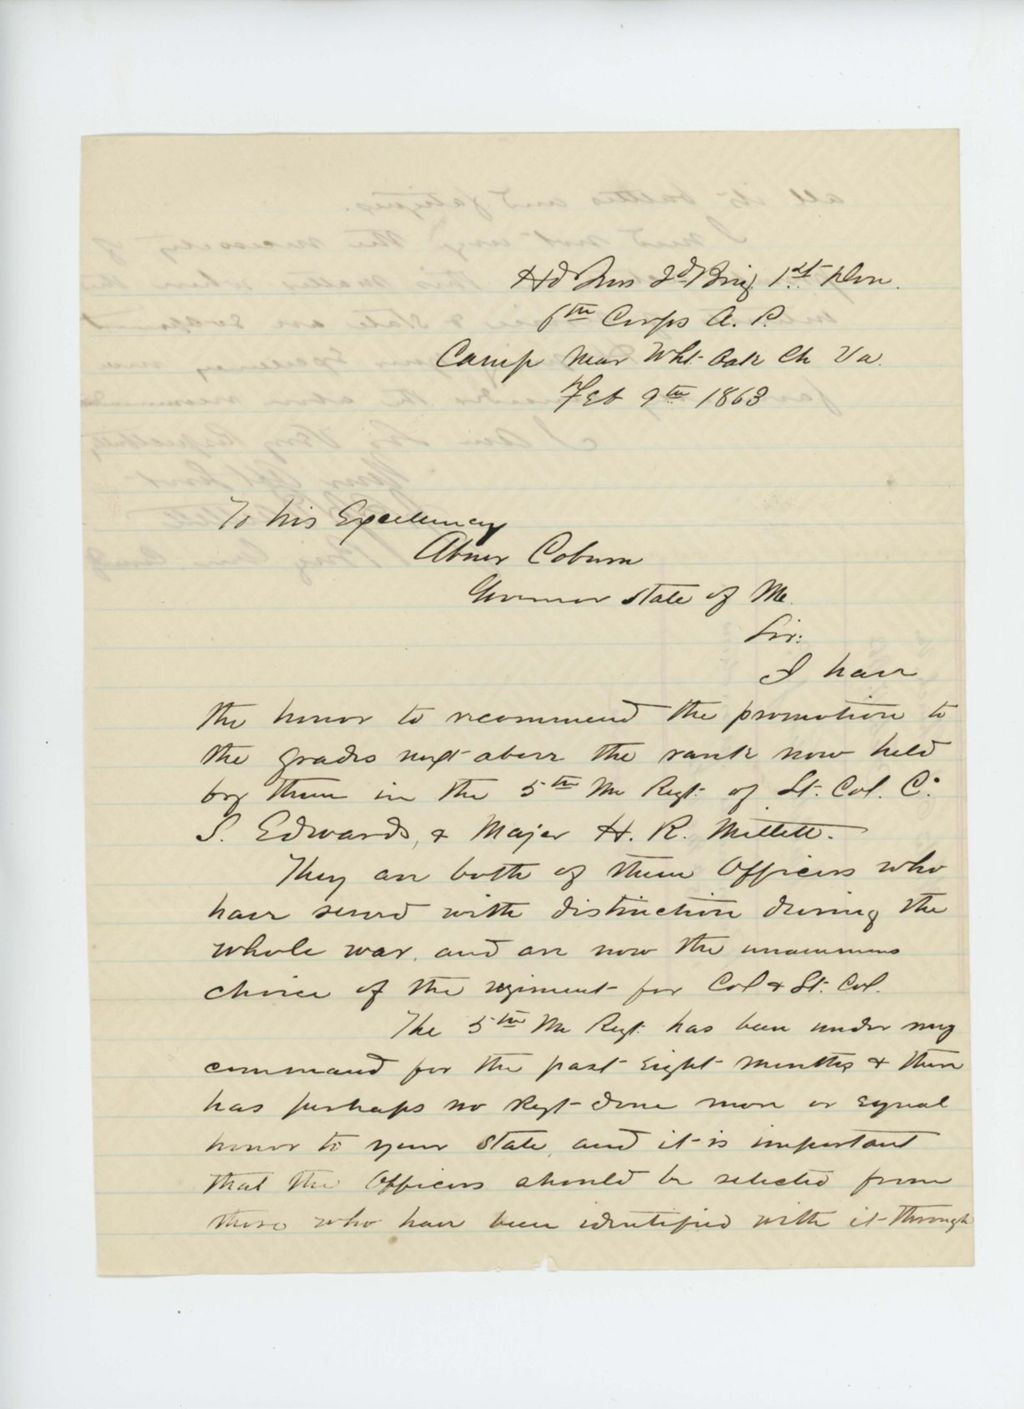 Hd Qrs 2d Brig 1st Divn.
6th Corps A. P.
Camp Near Wht. Oak Ch Va
Feb 9th 1863
To his Excellency
Abner Coburn
Governor State of Me.
Sir:
I have
the honor to recommend the promotion to
the grades next above the rank now held
by them in the 5th Me Regt. of Lt. Col. C.
S. Edwards, & Major H. R. Millett.
They are both of them Officers who
have served with distinction during the
whole war, and are now the unanimous
choice of the regiment for Col & Lt. Col.
The 5th Me Regt. has been under my
command for the past eight months & there
has perhaps no Regt done more or equal
honor to your State, and it is important
that the Officers should be selected from
those who have been identified with it through